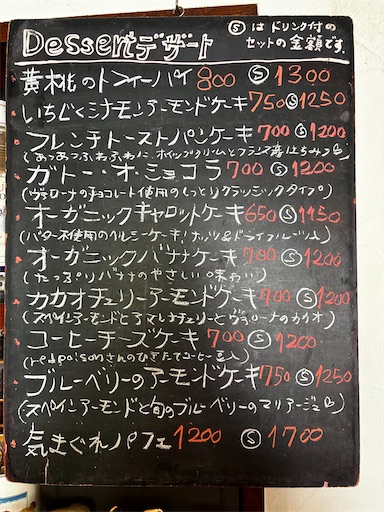 Dessertデザート
Ⓢはドリンク付の
セットの金額です。
黄桃のトフィーパイ 800 Ⓢ1300
いちじくシナモンアーモンドケーキ750Ⓢ1250
フレンチトーストパンケーキ700Ⓢ1200
(あつあつふわふわに ホイップクリームとフランス産はちみつ)
ガトー・オ・ショコラ 700Ⓢ1200
(ヴァローナのチョコレート使用のしっとりクラシックタイプ)
オーガニックキャロットケーキ650Ⓢ1150
(バター不使用のヘルシーケーキ!ナッツ&ドライフルーツ入)
オーガニックバナナケーキ700Ⓢ1200
(たっぷりバナナのやさしい味わい)
カカオチェリーアーモンドケーキ700Ⓢ1200
(スペインアーモンドとアマレナチェリーとヴァローナのカカオ)
コーヒーチーズケーキ 700Ⓢ1200
(redpoisonさんのひきたてコーヒー豆入)
ブルーベリーのアーモンドケーキ750Ⓢ1250
(スペインアーモンドと旬のブルーベリーのマリアージュ)
気まぐれパフェ1200 Ⓢ1700